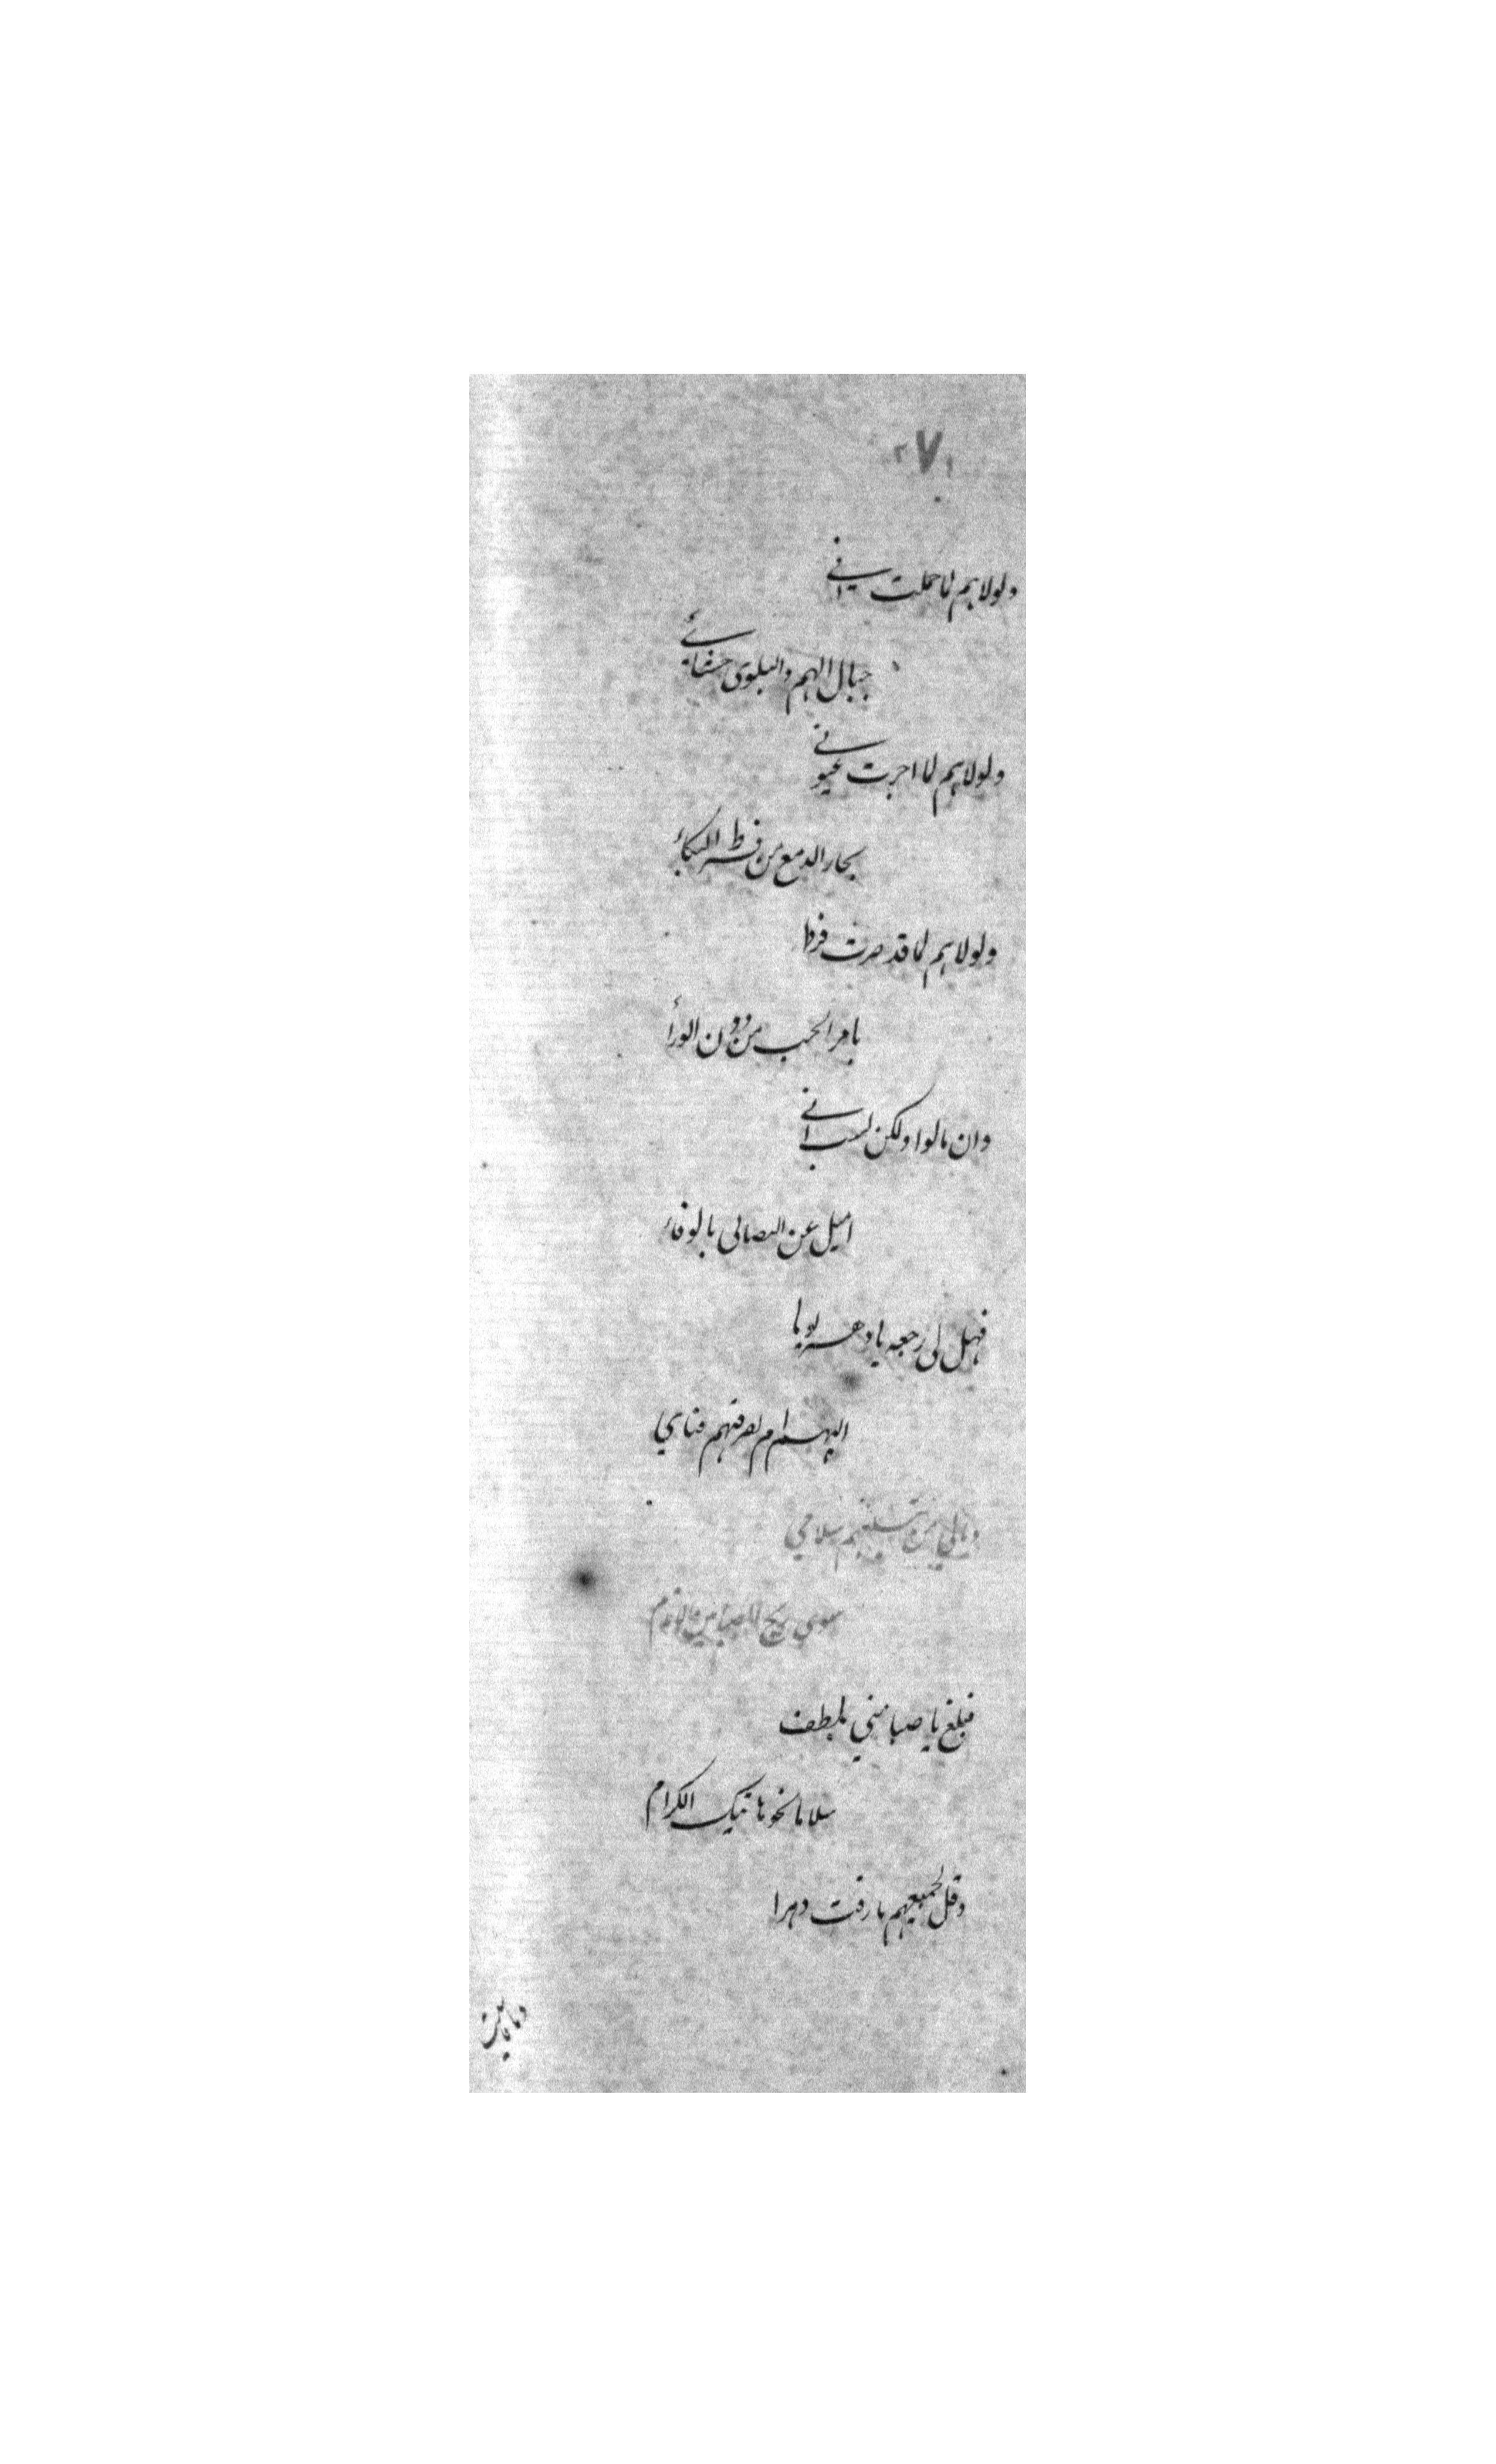 ٢٧١
ولولاهم لما حملت اني
جبال الهم والبلوى حشائي
ولولاهم لما اجرت عيوني
بحار الدمع من فرط البكاء
ولولاهم لما قد صرت فردا
بامر الحب من دون الورأ
وان مالوا ولكن لست اني
اميل عن التصابي بالوفاء
فهل لي رجعه يا دهر يوما
اليهم ام بصرفهم فناي
ومالي من يبلغهم سلامي
سوى ريح الصبا من
فبلغ يا صبا مني بلطف
سلاما نحو هاتيك الكرام
وقل لجميعهم ما رقت دهرا
وما